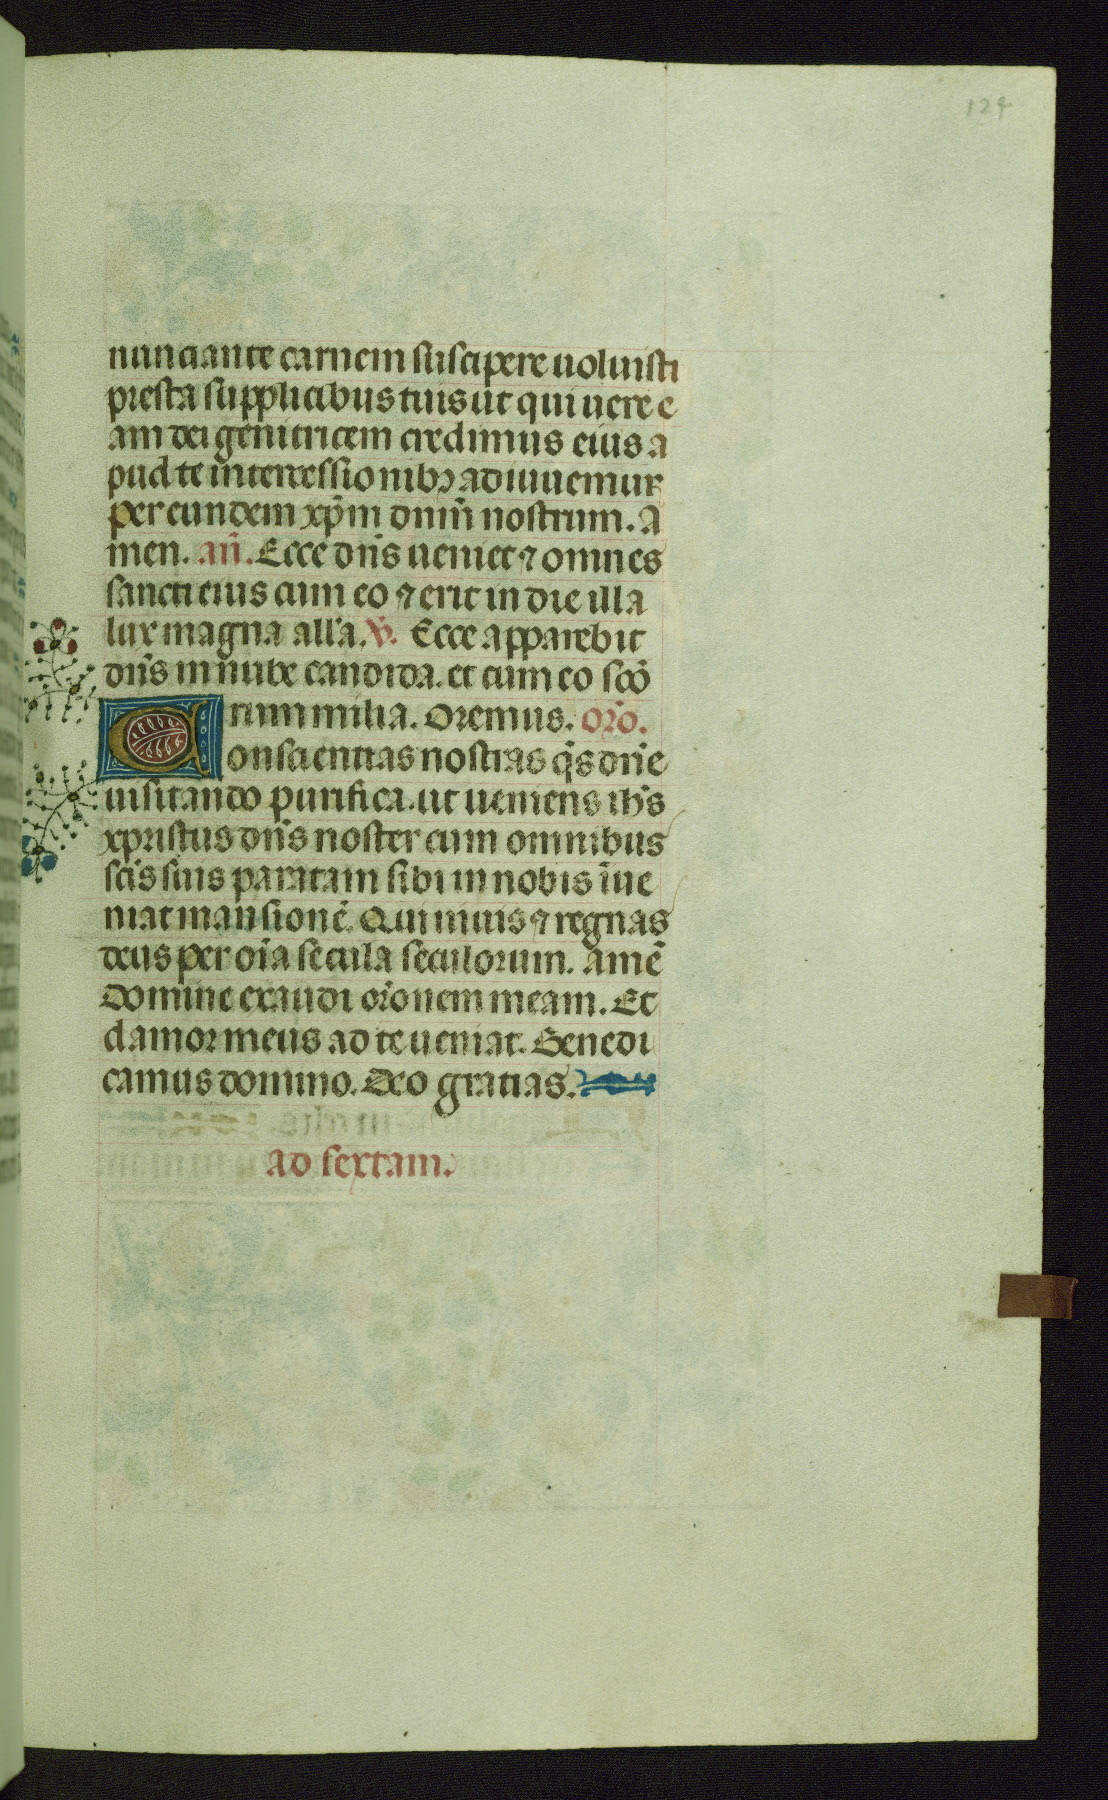 124
nunciante carnem suscipere uoluisti
presta supplicibus tuis ut qui uere e
am dei genitricem credimus eius a
pud te intercessionibꝫ adiuuemur
per eundem xp̄m dn̄m nostrum. A
men. an̄. Ecce dn̄s ueniet ⁊ omnes
sancti eius cum eo ⁊ erit in die illa
lux magna all'a. ℣. Ecce apparebit
dn̄s in nube candida. et cum eo sc̄o
rum milia. Oremus. or̄o.
Conscientias nostras q̄s dn̄e
uisitando purifica. ut ueniens ih̄s
xpristus dn̄s noster cum omnibus
sc̄is suis paratam sibi in nobis īue
niat mansionē. Qui uiuis ⁊ regnas
deus per oīa secula seculorum. amē
Domine exaudi or̄onem meam. Et
clamor meus ad te ueniat. Benedi
camus domino. Deo gratias.
ad sextam.